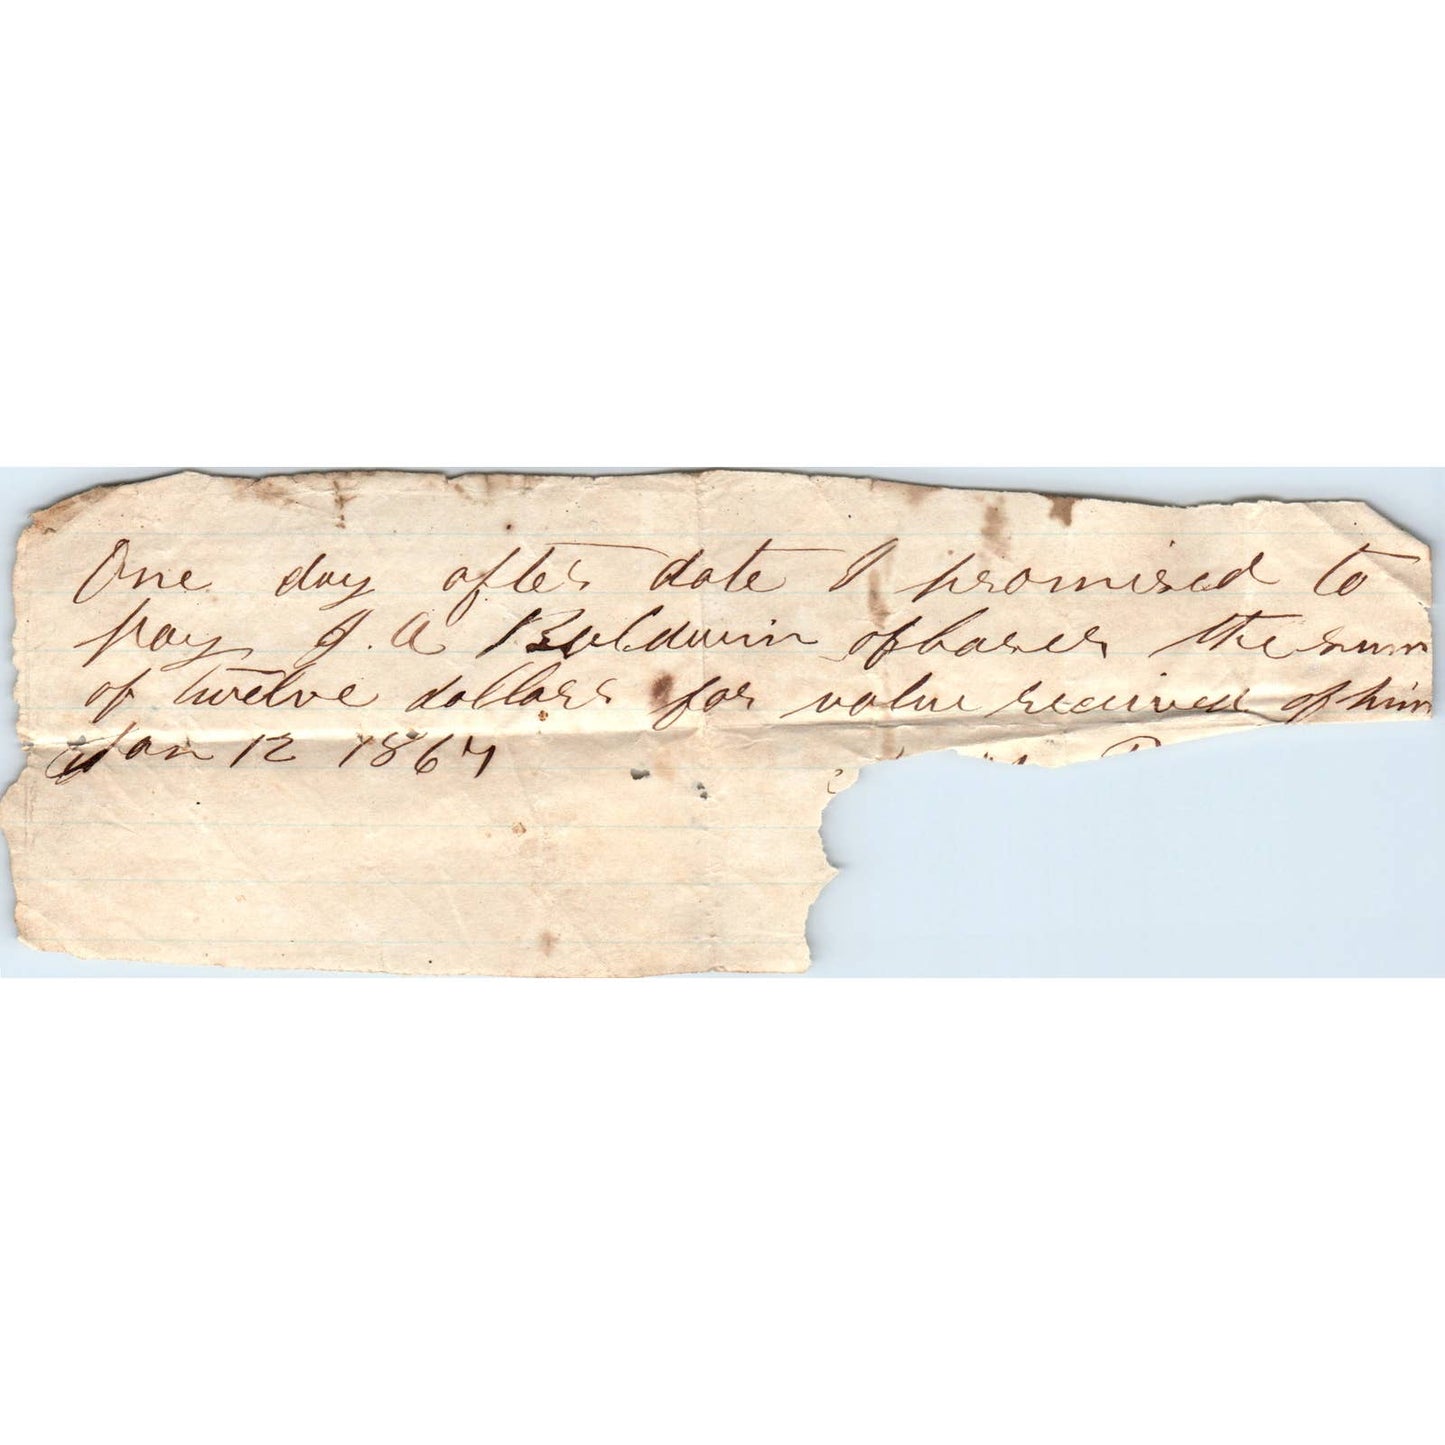 One day after date I promised to
pay J. A Baldwin or barer the sum
of twelve dollars for value received of him
Jan 12 1867